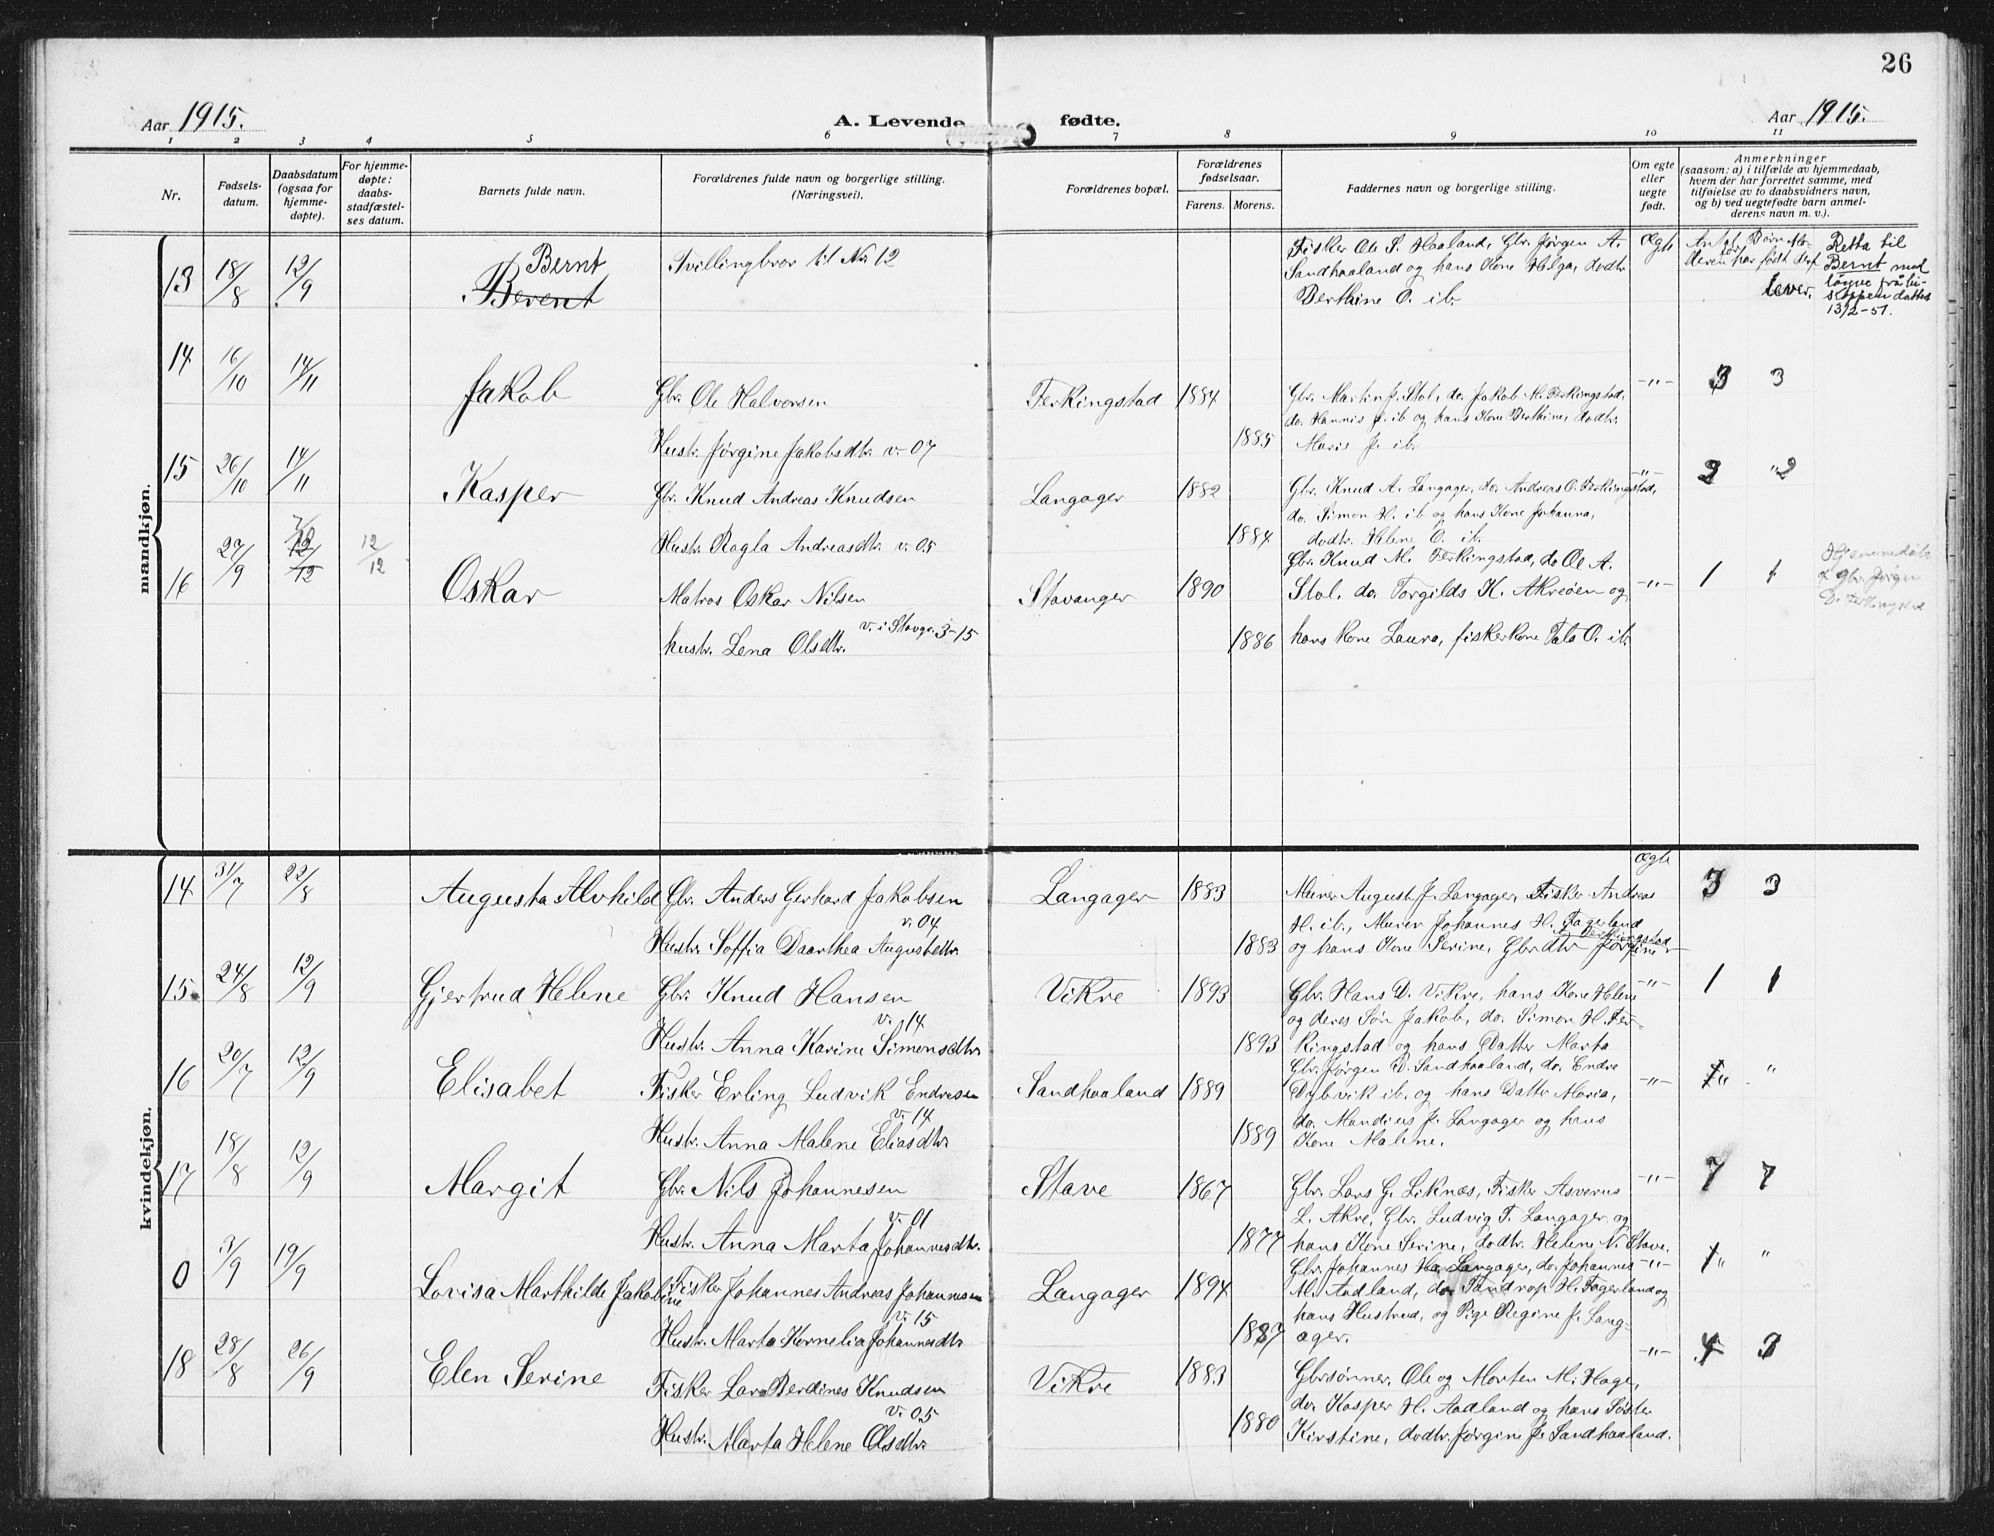 26
Aar 1915.
A. Levende fødte.
Aar 1915.
1 2 3 4 5 6 7 8 9 10 11
Nr.
Fødsels-
datum.
Daabsdatum
(ogsaa for
hjemme-
døpte).
For hjemme-
døpte:
daabs-
stadfæstel-
ses datum.
Barnets fulde navn.
Forældrenes fulde navn og borgerlige stilling.
(Næringsvei).
Forældrenes bopæl.
Forældrenes
fødselsaar.
Farens. Morens.
Faddernes navn og borgerlige stilling.
Om egte
eller
uegte
født.
Anmerkninger
(saasom: a) i tilfælde av hjemmedaab,
hvem der har forrettet samme, med
tilføielse av to daabsvidners navn,
og b) ved uegtefødte barn anmel-
derens navn m. v.).
mandkjøn.
13 18/8 12/9 Bernt
Berent
Tvillingbror til Nr. 12
Fisker Ole S. Haaland, Gbr. Jørgen A.
Sandhaaland og hans Kone Helga, dodtr.
Berthine O. ib.
Ægte
Antal Børn Mo-
deren har født deraf
lever.
Retta til
Bernt med
løyve frå bi-
skopen datter
13/2-51.
14 16/10 14/11 Jakob
Gbr. Ole Halvorsen
Hustr. Jørgine Jakobsdtr. v. 07
Ferkingstad 1884
1885
Gbr. Martin J. Stol, do. Jakob M. Ferkingstad,
do. Hannis J. ib og hans Kone Berthine, dodtr.
Maris J. ib.
-"- 3 3
15 26/10 14/11 Kasper
Gbr. Knud Andreas Knudsen
Hustr. Ragla Andreasdtr. v. 05
Langager 1882
1884
Gbr. Knud A. Langager, do. Andreas O. Ferkingstad,
do. Simon H. ib og hans Kone Johanna,
dodtr. Helene O. ib.
-"- 2 "2
16 27/9 12/12 12/12 Oskar
Matros Oskar Nilsen
v. i Stavgr. 3-15
hustr. Lena Olsdtr.
Stavanger 1890
1886
Gbr. Knud M. Ferkingstad, do Ole A.
Stol, do. Torgilds K. Akreøen og
hans Kone Laura, fiskerkone Tala O. ib.
-"- 1 1
kvindekjøn.
14 31/7 22/8 Augusta Alvhild
Gbr. Anders Gerhard Jakobsen
v. 04
Hustr. Soffia Daarthea Augustdtr.
Langager 1883
1883
Murer August J. Langager, Fisker Andreas
H. ib., Murer Johannes H. Fagerland
og hans Kone Serine, Gbrdtr Jørgine Ferkingstad
Ægte 3 3
15. 24/8 12/9 Gjertrud Helene
Gbr. Knud Hansen
v. 14
Hustr. Anna Karine Simonsdtr.
Vikre 1893
1893
Gbr. Hans D. Vikre, hans Kone Helene
og deres Søn Jakob, do. Simon H. Fer-
kingstad og hans Datter Marta
-"- 1 1
16 20/7 12/9 Elisabet
Fisker Erling Ludvik Endresen
v. 14
Hustr. Anna Malene Eliasdtr.
Sandhaaland 1889
1889
Gbr. Jørgen D. Sandhaaland, do. Endre
Dybvik ib. og hans Dattr Maria,
do. Mandius J. Langager og hans
Kone Malene.
-"- 1" "
17 18/8 12/9 Margit
Gbr. Nils Johannesen
v. 01
Hustr. Anna Marta Johannesdtr.
Stave 1867
1877
Gbr. Lars G. Liknæs, Fisker Asverus
L. Akre, Gbr. Ludvig T. Langager og
hans Kone Serine, dodtr. Helene N. Stave.
-"- 7 7
0 3/9 19/9 Lovisa Marthilde Jakobine
Fisker Johannes Andreas Johannesen
v. 15
Hustr. Marta Kornelia Johannesdtr.
Langager 1894
1887
Gbr. Johannes Langager, do. Johannes
M. Aadland, do. Tandrup H. Fagerland og
hans Hustrud, og Pige Regine J. Lang-
ager.
-"- 1" "
18 28/8 26/9 Elen Serine
Fisker Lars Berdines Knudsen
v. 05
Hustr. Marta Helene Olsdtr.
Vikre 1883
1880
Gbrsønner, Ole og Morten M. Hage,
do. Kasper H. Aadland og hans Søster
Kirstine, dodtr. Jørgine J. Sandhaaland.
-"- 4 3